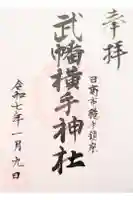 奉拝
日高市横手鎮座
武幡横手神社
令和七年一月九日